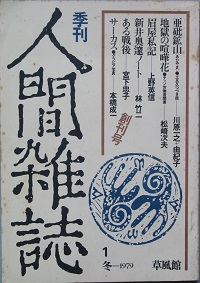 季刊
人間雑誌
創刊号
亜砒鉱山
川原一之・由紀子
地獄の喧嘩花
松崎次夫
眉屋私記
上野英信
新井奥邃
林竹二
ある戦後
宮下忠子
サーカス
本橋成一
1
冬—1979
草風館